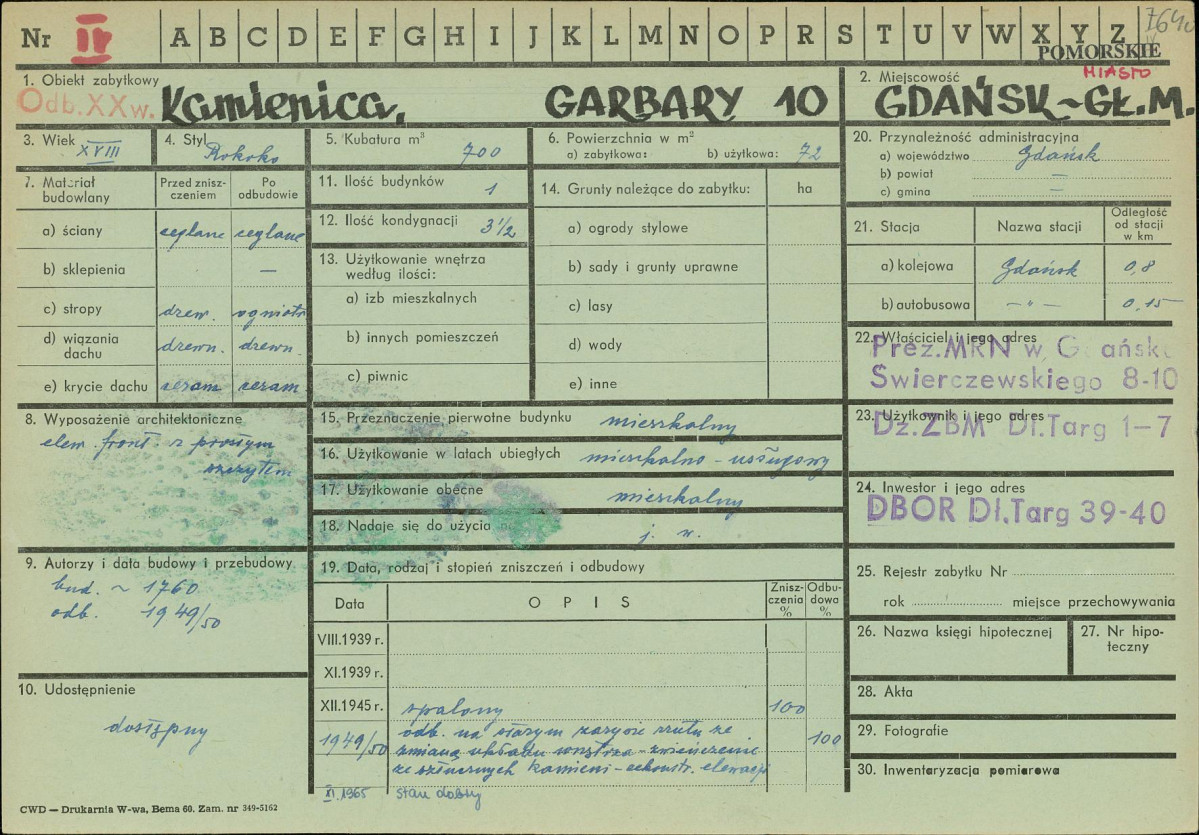 Nr II A B C D E F G H I J K L M N O P R S T U V W X Y Z 7640
POMORSKIE
1. Obiekt zabytkowy
Odb. XX w. Kamienica, GARBARY 10
2. Miejscowość MIASTO
GDAŃSK – GŁ. M.
3. Wiek XVIII
4. Styl Rokoko
5. Kubatura m³ 700
6. Powierzchnia w m²
a) zabytkowa: b) użytkowa: 72
7. Materiał budowlany
Przed zniszczeniem
Po odbudowie
a) ściany ceglane ceglane
b) sklepienia —
c) stropy drew. ogniotr
d) wiązania dachu drewn. drewn.
e) krycie dachu ceram ceram
8. Wyposażenie architektoniczne
elew. front. z prostym
szczytem
9. Autorzy i data budowy i przebudowy
bud. ~ 1760
odb. 1949/50
10. Udostępnienie
dostępny
11. Ilość budynków 1
12. Ilość kondygnacji 3½
13. Użytkowanie wnętrza
według ilości:
a) izb mieszkalnych
b) innych pomieszczeń
c) piwnic
14. Grunty należące do zabytku: ha
a) ogrody stylowe
b) sady i grunty uprawne
c) lasy
d) wody
e) inne
15. Przeznaczenie pierwotne budynku mieszkalny
16. Użytkowanie w latach ubiegłych mieszkalno - usługowy
17. Użytkowanie obecne mieszkalny
18. Nadaje się do użycia na j. w.
19. Data, rodzaj i stopień zniszczeń i odbudowy
Data OPIS Zniszczenia % Odbudowa %
VIII.1939 r.
XI.1939 r.
XII.1945 r. spalony 100
1949/50 odb. na starym zarysie rzutu ze 100
zmianą układu wnętrza - zwieńczenie
ze sztucznych kamieni - rekonstr. elewacji
XI.1965 stan dobry
20. Przynależność administracyjna
a) województwo Gdańsk
b) powiat —
c) gmina —
21. Stacja Nazwa stacji Odległość od stacji w km
a) kolejowa Gdańsk 0,8
b) autobusowa – " – 0,15
22. Właściciel i jego adres
Prez. MRN w Gdańsku
Swierczewskiego 8-10
23. Użytkownik i jego adres
Dz. ZBM Dł. Targ 1–7
24. Inwestor i jego adres
DBOR Dł. Targ 39-40
25. Rejestr zabytku Nr
rok miejsce przechowywania
26. Nazwa księgi hipotecznej
27. Nr hipoteczny
28. Akta
29. Fotografie
30. Inwentaryzacja pomiarowa
CWD — Drukarnia W-wa, Bema 60. Zam. nr 349-5162